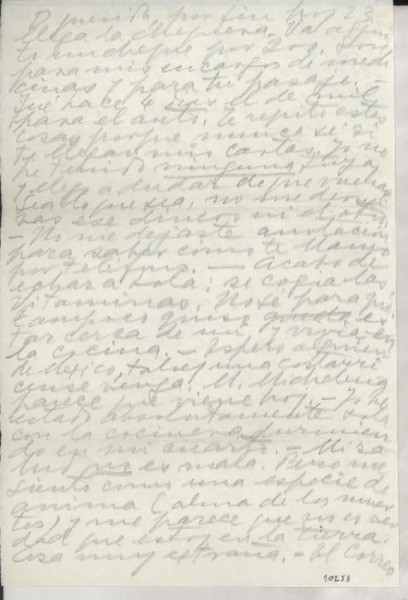 D. querida, por fin hoy 23
llega la chequera. Va adjun-
to un cheque por 200. Son
para mis encargos de medi-
cinas y para tu pasaje. -
Te hace 4 el de mil
para el auto. Te repito estas
cosas porque nunca sé si
te llegan mis cartas. Yo no
he tenido ninguna tuya
y llego a dudar de que vuelvas
Sea lo que sea, no me devuel-
vas ese dinero ni el otro.
- No me dejaste anotación
para saber cómo te llamo
por teléfono. - Acabo de
echar a Lola: se cogía las
vitaminas. No sé para qué
tampoco quiso es-
tar cerca de mí y vivía en
la cocina. - Espero alguien
de México, talvez una costarri-
cense venga. M. Michelena
parece que viene hoy. - Yo he
estado absolutamente sola
con la cocinera durmien-
do en mi cuarto. - Mi sa-
lud no es mala. Pero me
siento como una especie de
anima (alma de los muer-
tos) y me parece que no es ver-
dad que estoy en la tierra.
Cosa muy extraña. - El Correo
10253